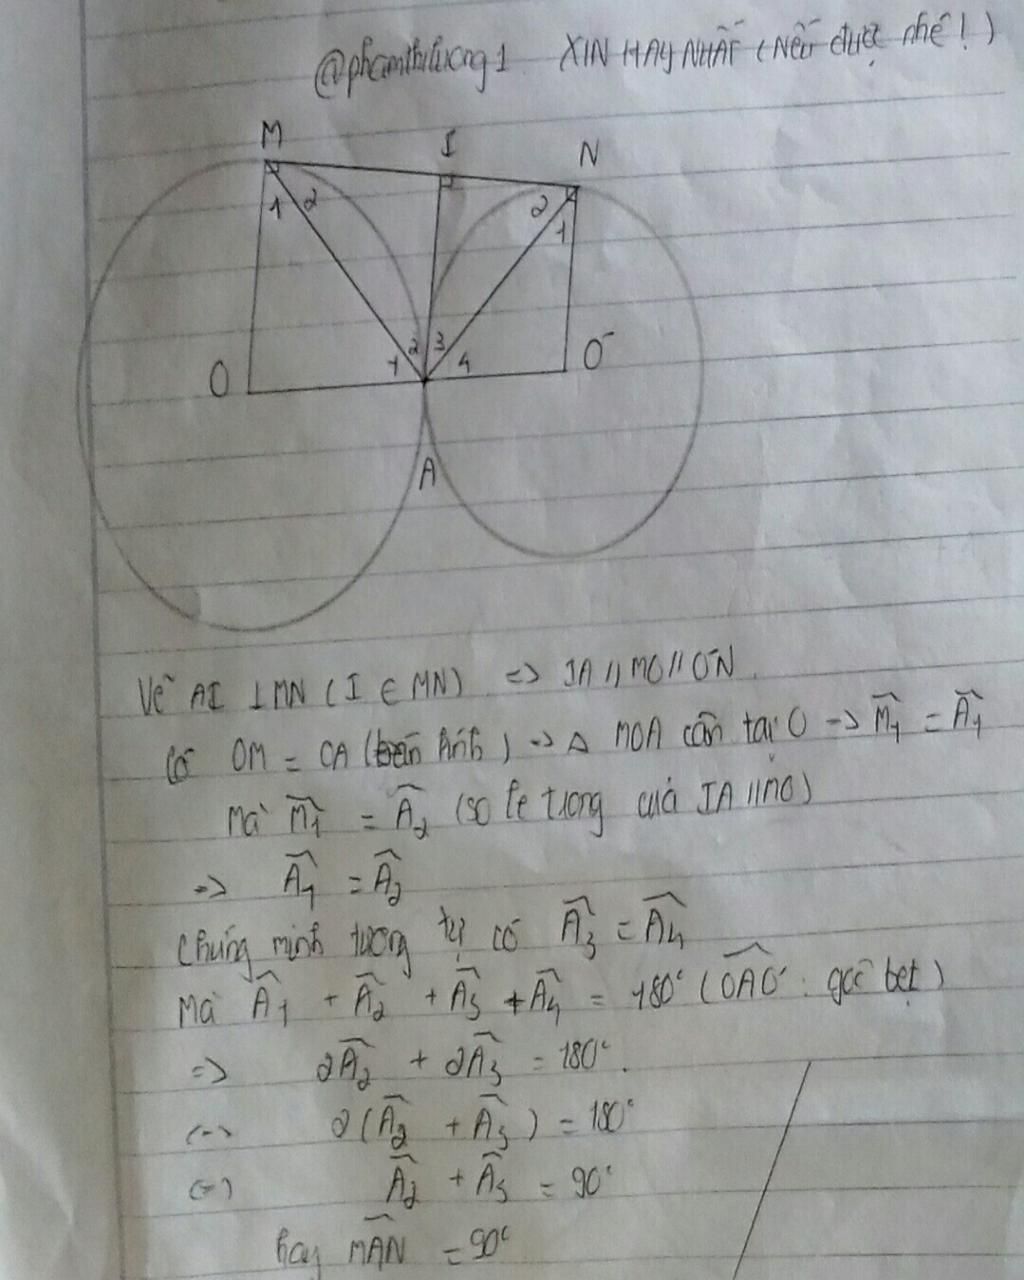 @phamthiluong1 XIN HAY NHẤT (Nếu được nhé!)
M I N
1 2 2 1
O 1 2 3 4 O'
A
Vẽ AI ⊥ MN (I ∈ MN) => IA // MO // O'N.
Có OM = OA (bán kính) => Δ MOA cân tại O -> M̂₁ = Â₁
Mà M̂₁ = Â₂ (so le tương của IA // MO)
=> Â₁ = Â₂
Chứng minh tương tự có Â₃ = Â₄
Mà Â₁ + Â₂ + Â₃ + Â₄ = 180° (OAO' : góc bẹt)
=> 2Â₂ + 2Â₃ = 180°.
<=> 2(Â₂ + Â₃) = 180°
<=> Â₂ + Â₃ = 90°
hay MAN = 90°